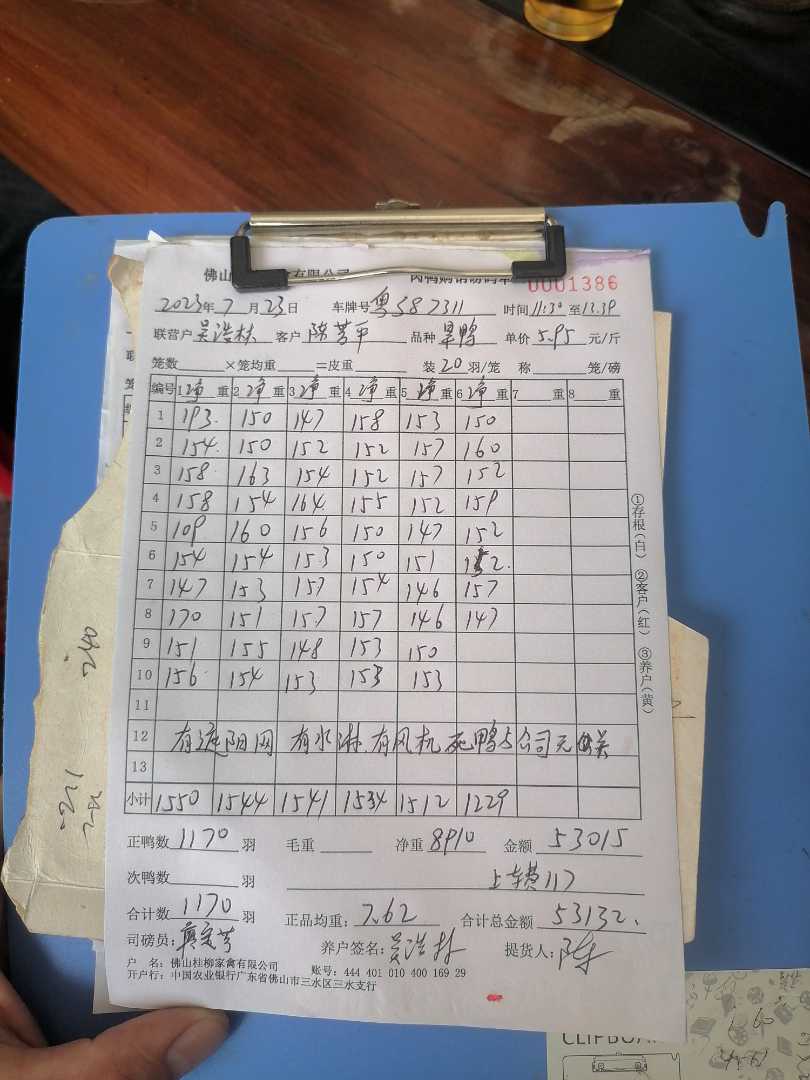 佛山 有限公司
0001386
2023年7月23日 车牌号粤S87311 时间11:30至13.39
联营户吴浩林 客户陈芳平 品种旱鸭 单价5.95元/斤
笼数 ×笼均重 =皮重 装20羽/笼 称 笼/磅
编号 1净重 2净重 3净重 4净重 5净重 6净重 7 重 8 重
1 193. 150 147 158 153 150
2 154. 150 152 152 157 160
3 158 163 154 152 157 152
4 158 154 164. 155 152 159
5 109 160 156 150 147 152
6 154 154 153 150 151 152.
7 147 153 157 154 146 157
8 170 151 157 157 146 147
9 151 155 148 153 150
10 156 154 153 153 153
11
12 有遮阳网 有水淋 有风机 死鸭与公司无关
13
小计 1550 1544 1541 1534 1512 1229
①存根(白) ②客户(红) ③养户(黄)
正鸭数1170羽 毛重 净重8910 金额53015
次鸭数 羽 上车费117
合计数1170羽 正品均重:7.62 合计总金额53132.
司磅员: 养户签名:吴浩林 提货人:陈
户 名:佛山桂柳家禽有限公司 账号:444 401 010 400 169 29
开户行:中国农业银行广东省佛山市三水区三水支行
240
CLIPBOA